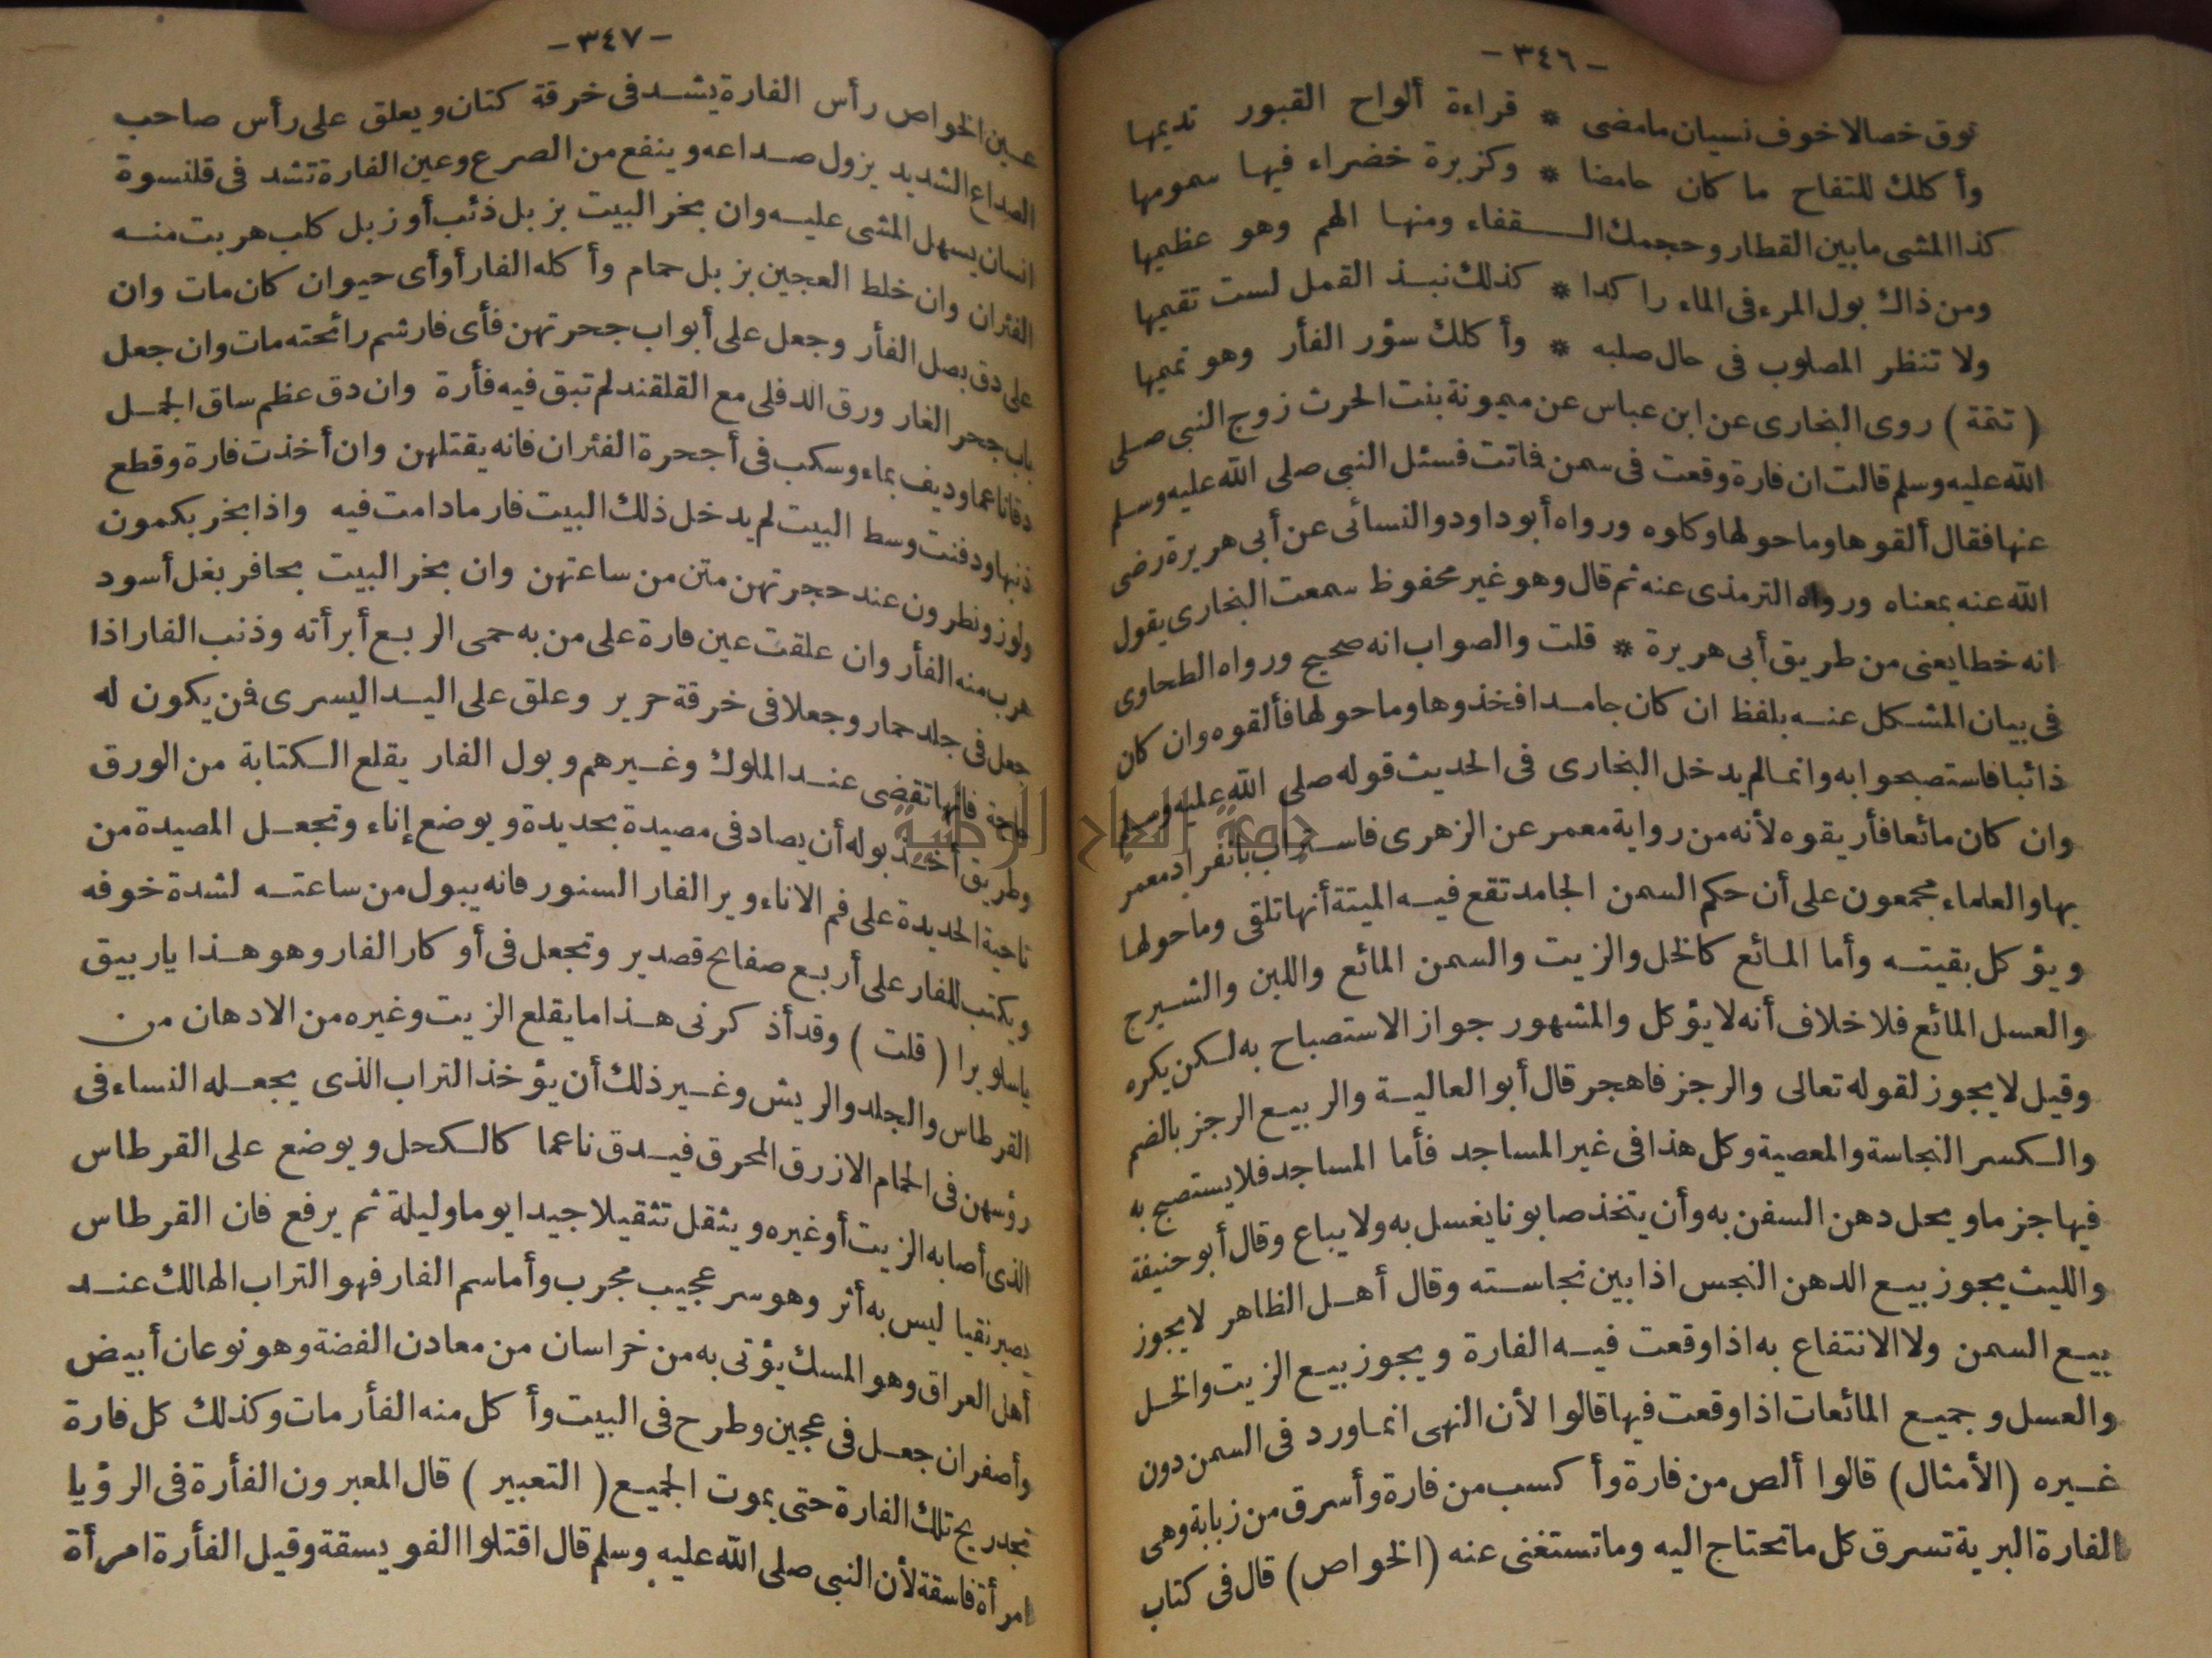 - ٣٤٦ -
توق خصالا خوف نسيان ما مضى * قراءة ألواح القبور تديمها
وأكلك للتفاح ما كان حامضا * وكزبرة خضراء فيها سمومها
كذا المشى ما بين القطار وحجمك الـقفاء ومنها الهم وهو عظيمها
ومن ذاك بول المرء فى الماء راكدا * كذلك نبذ القمل لست تقيمها
ولا تنظر المصلوب فى حال صلبه * وأكلك سؤر الفأر وهو تميمها
( تتمة ) روى البخارى عن ابن عباس عن ميمونة بنت الحرث زوج النبى صلى
الله عليه وسلم قالت ان فارة وقعت فى سمن فماتت فسئل النبى صلى الله عليه وسلم
عنها فقال ألقوها وما حولها وكلوه ورواه أبو داود والنسائى عن أبى هريرة رضى
الله عنه بمعناه ورواه الترمذى عنه ثم قال وهو غير محفوظ سمعت البخارى يقول
انه خطا يعنى من طريق أبى هريرة * قلت والصواب انه صحيح ورواه الطحاوى
فى بيان المشكل عنه بلفظ ان كان جامدا فخذوها وما حولها فألقوه وان كان
ذائبا فاستصبحوا به وانما لم يدخل البخارى فى الحديث قوله صلى الله عليه وسلم
وان كان مائعا فأريقوه لأنه من رواية معمر عن الزهرى فاستراب بانفراد معمر
بها والعلماء مجمعون على أن حكم السمن الجامد تقع فيه الميتة أنها تلقى وما حولها
ويؤكل بقيته وأما المائع كالخل والزيت والسمن المائع واللبن والشيرج
والعسل المائع فلا خلاف أنه لا يؤكل والمشهور جواز الاستصباح به لكن يكره
وقيل لا يجوز لقوله تعالى والرجز فاهجر قال أبو العالية والربيع الرجز بالضم
والكسر النجاسة والمعصية وكل هذا فى غير المساجد فأما المساجد فلا يستصبح به
فيها جزما ويحل دهن السفن به وأن يتخذ صابونا يغسل به ولا يباع وقال أبو حنيفة
والليث يجوز بيع الدهن النجس اذا بين نجاسته وقال أهل الظاهر لا يجوز
بيع السمن ولا الانتفاع به اذا وقعت فيه الفارة ويجوز بيع الزيت والخل
والعسل وجميع المائعات اذا وقعت فيها قالوا لأن النهى انما ورد فى السمن دون
غيره (الأمثال) قالوا ألص من فارة وأكسب من فارة وأسرق من زبابة وهى
الفارة البرية تسرق كل ما تحتاج اليه وما تستغنى عنه (الخواص) قال فى كتاب
- ٣٤٧ -
عين الخواص رأس الفارة يشد فى خرقة كتان ويعلق على رأس صاحب
الصداع الشديد يزول صداعه وينفع من الصرع وعين الفارة تشد فى قلنسوة
انسان يسهل المشى عليه وان بخر البيت بزبل ذئب أو زبل كلب هربت منه
الفئران وان خلط العجين بزبل حمام وأكله الفار أو أى حيوان كان مات وان
على دق بصل الفأر وجعل على أبواب جحرتهن فأى فار شم رائحته مات وان جعل
باب جحر الفار ورق الدفلى مع القلقند لم تبق فيه فأرة وان دق عظم ساق الجمل
دقا ناعما وديف بماء وسكب فى أجحرة الفئران فانه يقتلهن وان أخذت فارة وقطع
ذنبها ودفنت وسط البيت لم يدخل ذلك البيت فار مادامت فيه واذا بخر بكمون
ولوز ونطرون عند حجرتهن متن من ساعتهن وان بخر البيت بحافر بغل أسود
هرب منه الفأر وان علقت عين فارة على من به حمى الربع أبرأته وذنب الفار اذا
جعل فى جلد حمار وجعلا فى خرقة حرير وعلق على اليد اليسرى فمن يكون له
حاجة فانها تقضى عند الملوك وغيرهم وبول الفار يقلع الكتابة من الورق
وطريق أخذ بوله أن يصاد فى مصيدة بحديدة ويوضع إناء وتجعل المصيدة من
ناحية الحديدة على فم الاناء وير الفار السنور فانه يبول من ساعته لشدة خوفه
ويكتب للفار على أربع صفايح قصدير وتجعل فى أوكار الفار وهو هذا ياربيق
ياسلويرا ( قلت ) وقد أذكرنى هذا ما يقلع الزيت وغيره من الادهان من
القرطاس والجلد والريش وغير ذلك أن يؤخذ التراب الذى يجعله النساء فى
رؤسهن فى الحمام الازرق المحرق فيدق ناعما كالكحل ويوضع على القرطاس
الذى أصابه الزيت أو غيره ويثقل تثقيلا جيدا يوما وليلة ثم يرفع فان القرطاس
يصير نقيا ليس به أثر وهو سر عجيب مجرب وأما سم الفار فهو التراب الهالك عند
أهل العراق وهو المسك يؤتى به من خراسان من معادن الفضة وهو نوعان أبيض
وأصفر ان جعل فى عجين وطرح فى البيت وأكل منه الفأر مات وكذلك كل فارة
تجد ريح تلك الفارة حتى يموت الجميع ( التعبير ) قال المعبرون الفأرة فى الرؤيا
امرأة فاسقة لأن النبى صلى الله عليه وسلم قال اقتلوا الفويسقة وقيل الفأرة امرأة
جامعة النجاح الوطنية